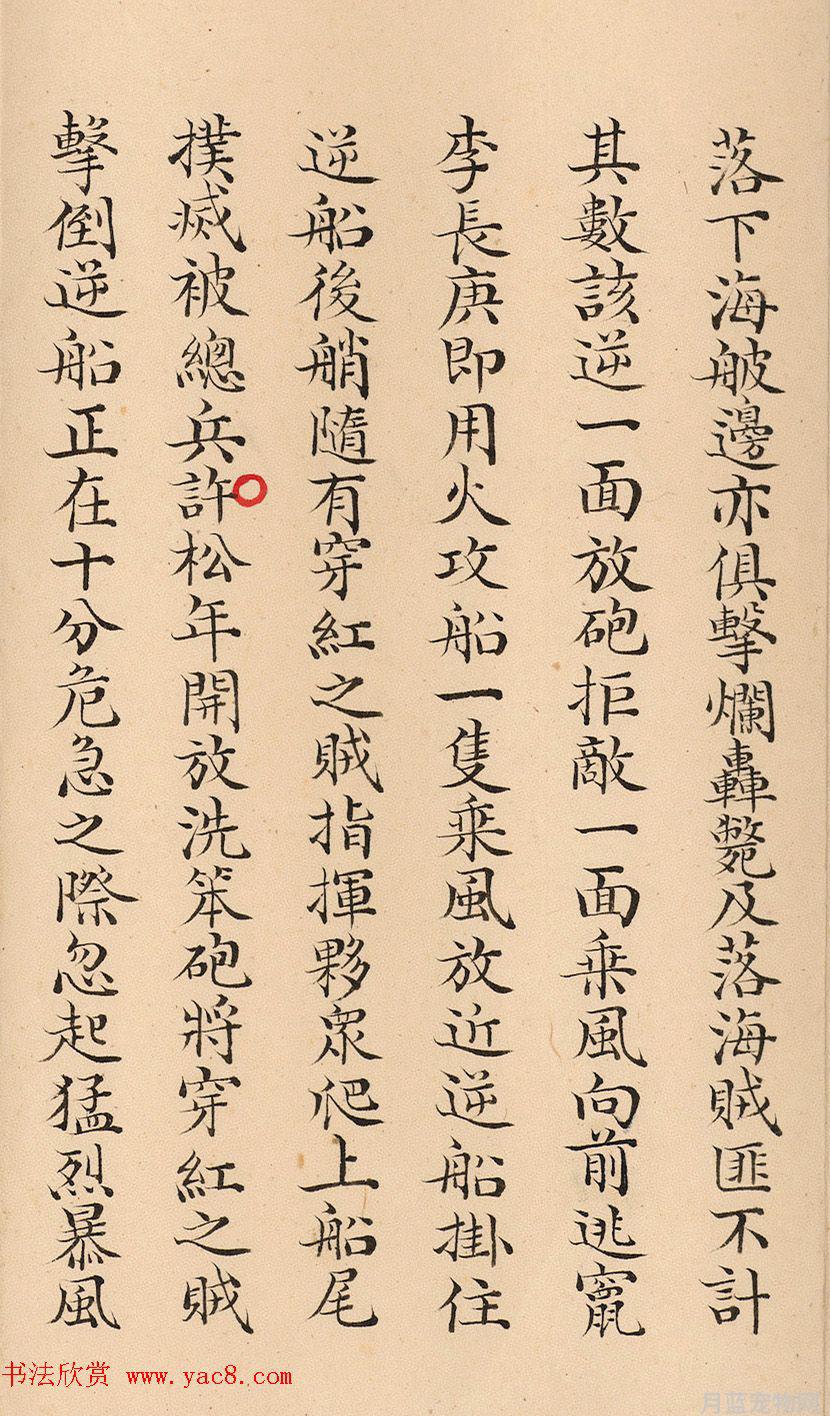 落下海舨邊亦俱擊爛轟斃及落海賊匪不計
其數該逆一面放砲拒敵一面乗風向前逃竄
李長庚即用火攻船一隻乗風放近逆船掛住
逆船後艄隨有穿紅之賊指揮夥眾爬上船尾
撲烕被總兵許松年開放洗笨砲將穿紅之賊
擊倒逆船正在十分危急之際忽起猛烈暴風
书法欣赏 www.yac8.com
月蓝宠物网